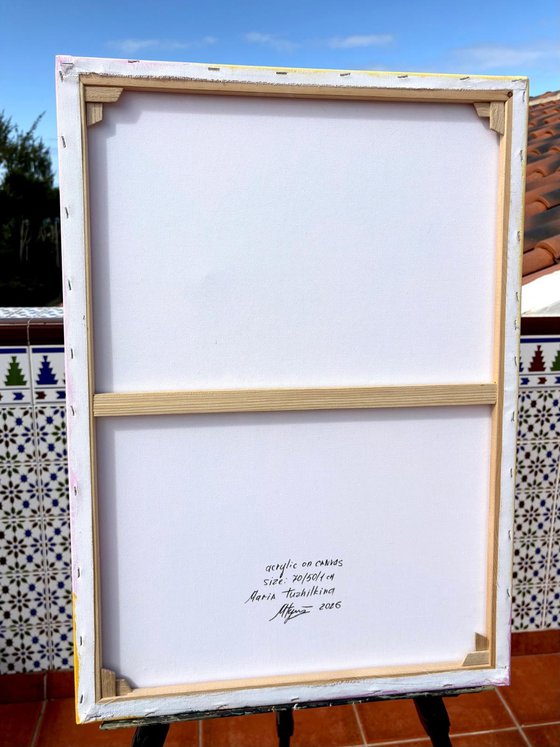 acrylic on canvas
size: 70/50/1 cm
Maria Kuzhilkina
2026